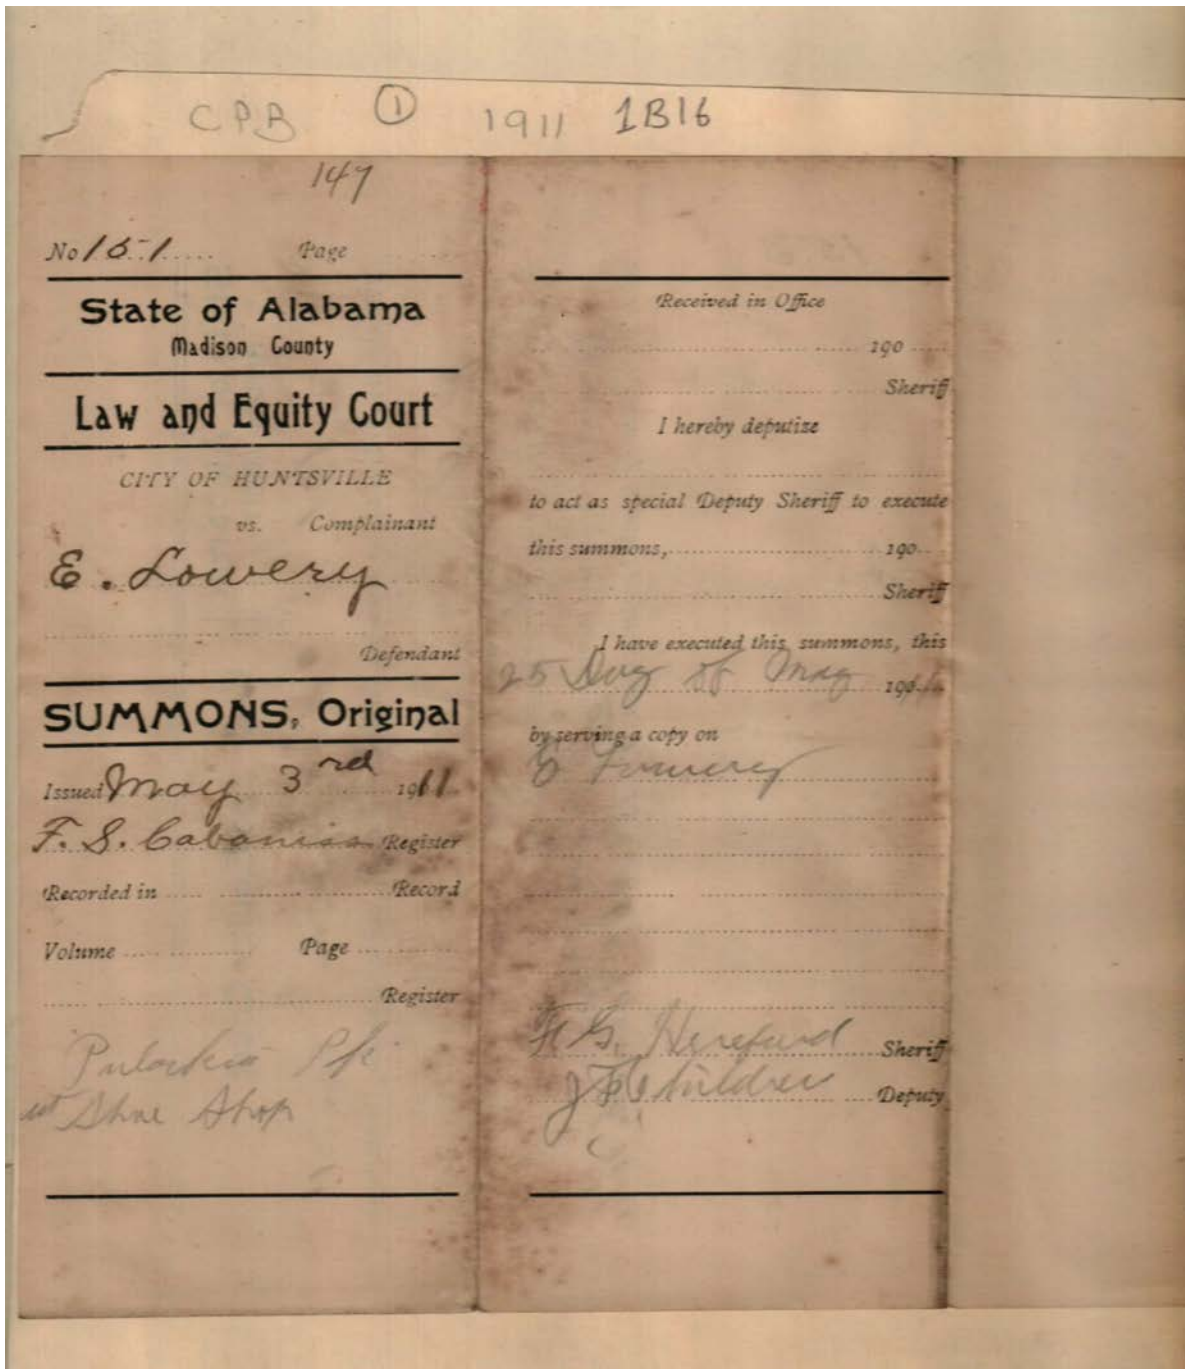 CPB ① 1911 1B16
147
No 151 Page
State of Alabama
Madison County
Law and Equity Court
CITY OF HUNTSVILLE
vs. Complainant
E. Lowery
Defendant
SUMMONS, Original
Issued May 3rd 1911
F. S. Cabaniss Register
Recorded in Record
Volume Page
Register
Pulaski Pk
at Shoe Shop
Received in Office
190
Sheriff
I hereby deputise
to act as special Deputy Sheriff to execute
this summons, 190
Sheriff
I have executed this summons, this
25 Day of May 1911
by serving a copy on
E Lowery
F. G. Hereford Sheriff
J F Childres Deputy